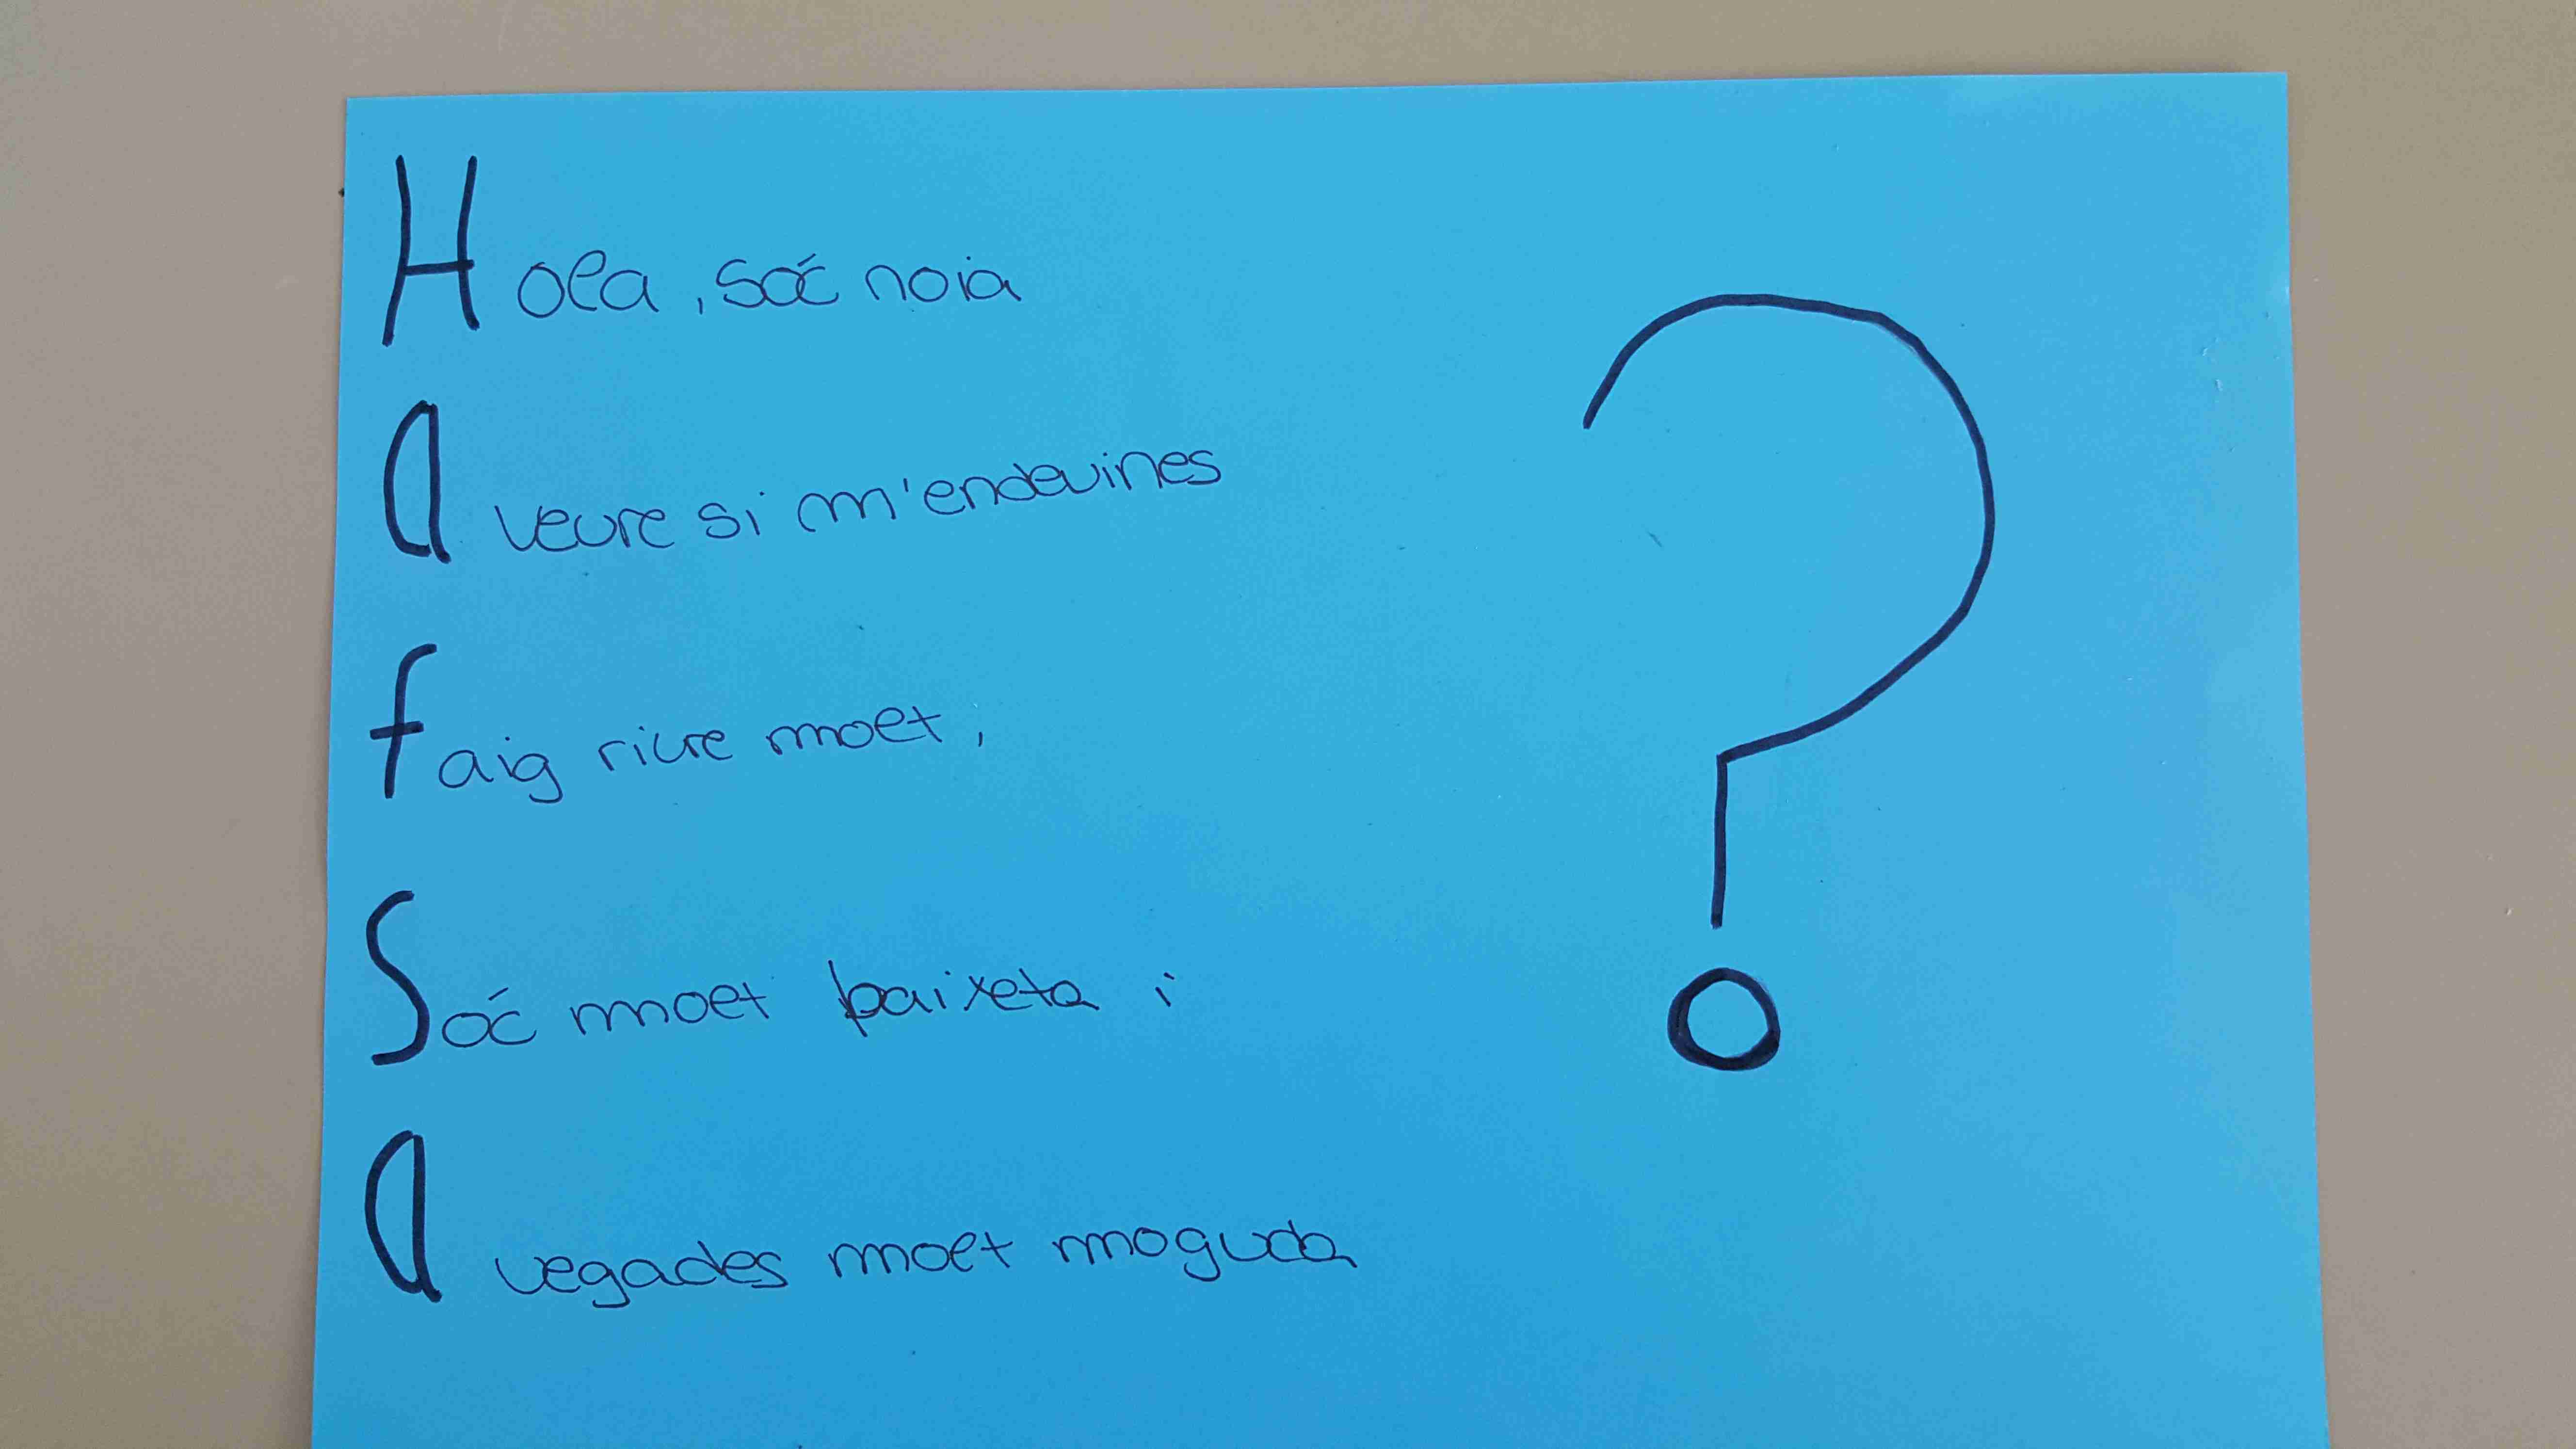 Hola, sóc noia
A veure si m'endevines
faig riure molt,
Sóc molt baixeta i
A vegades molt moguda
?